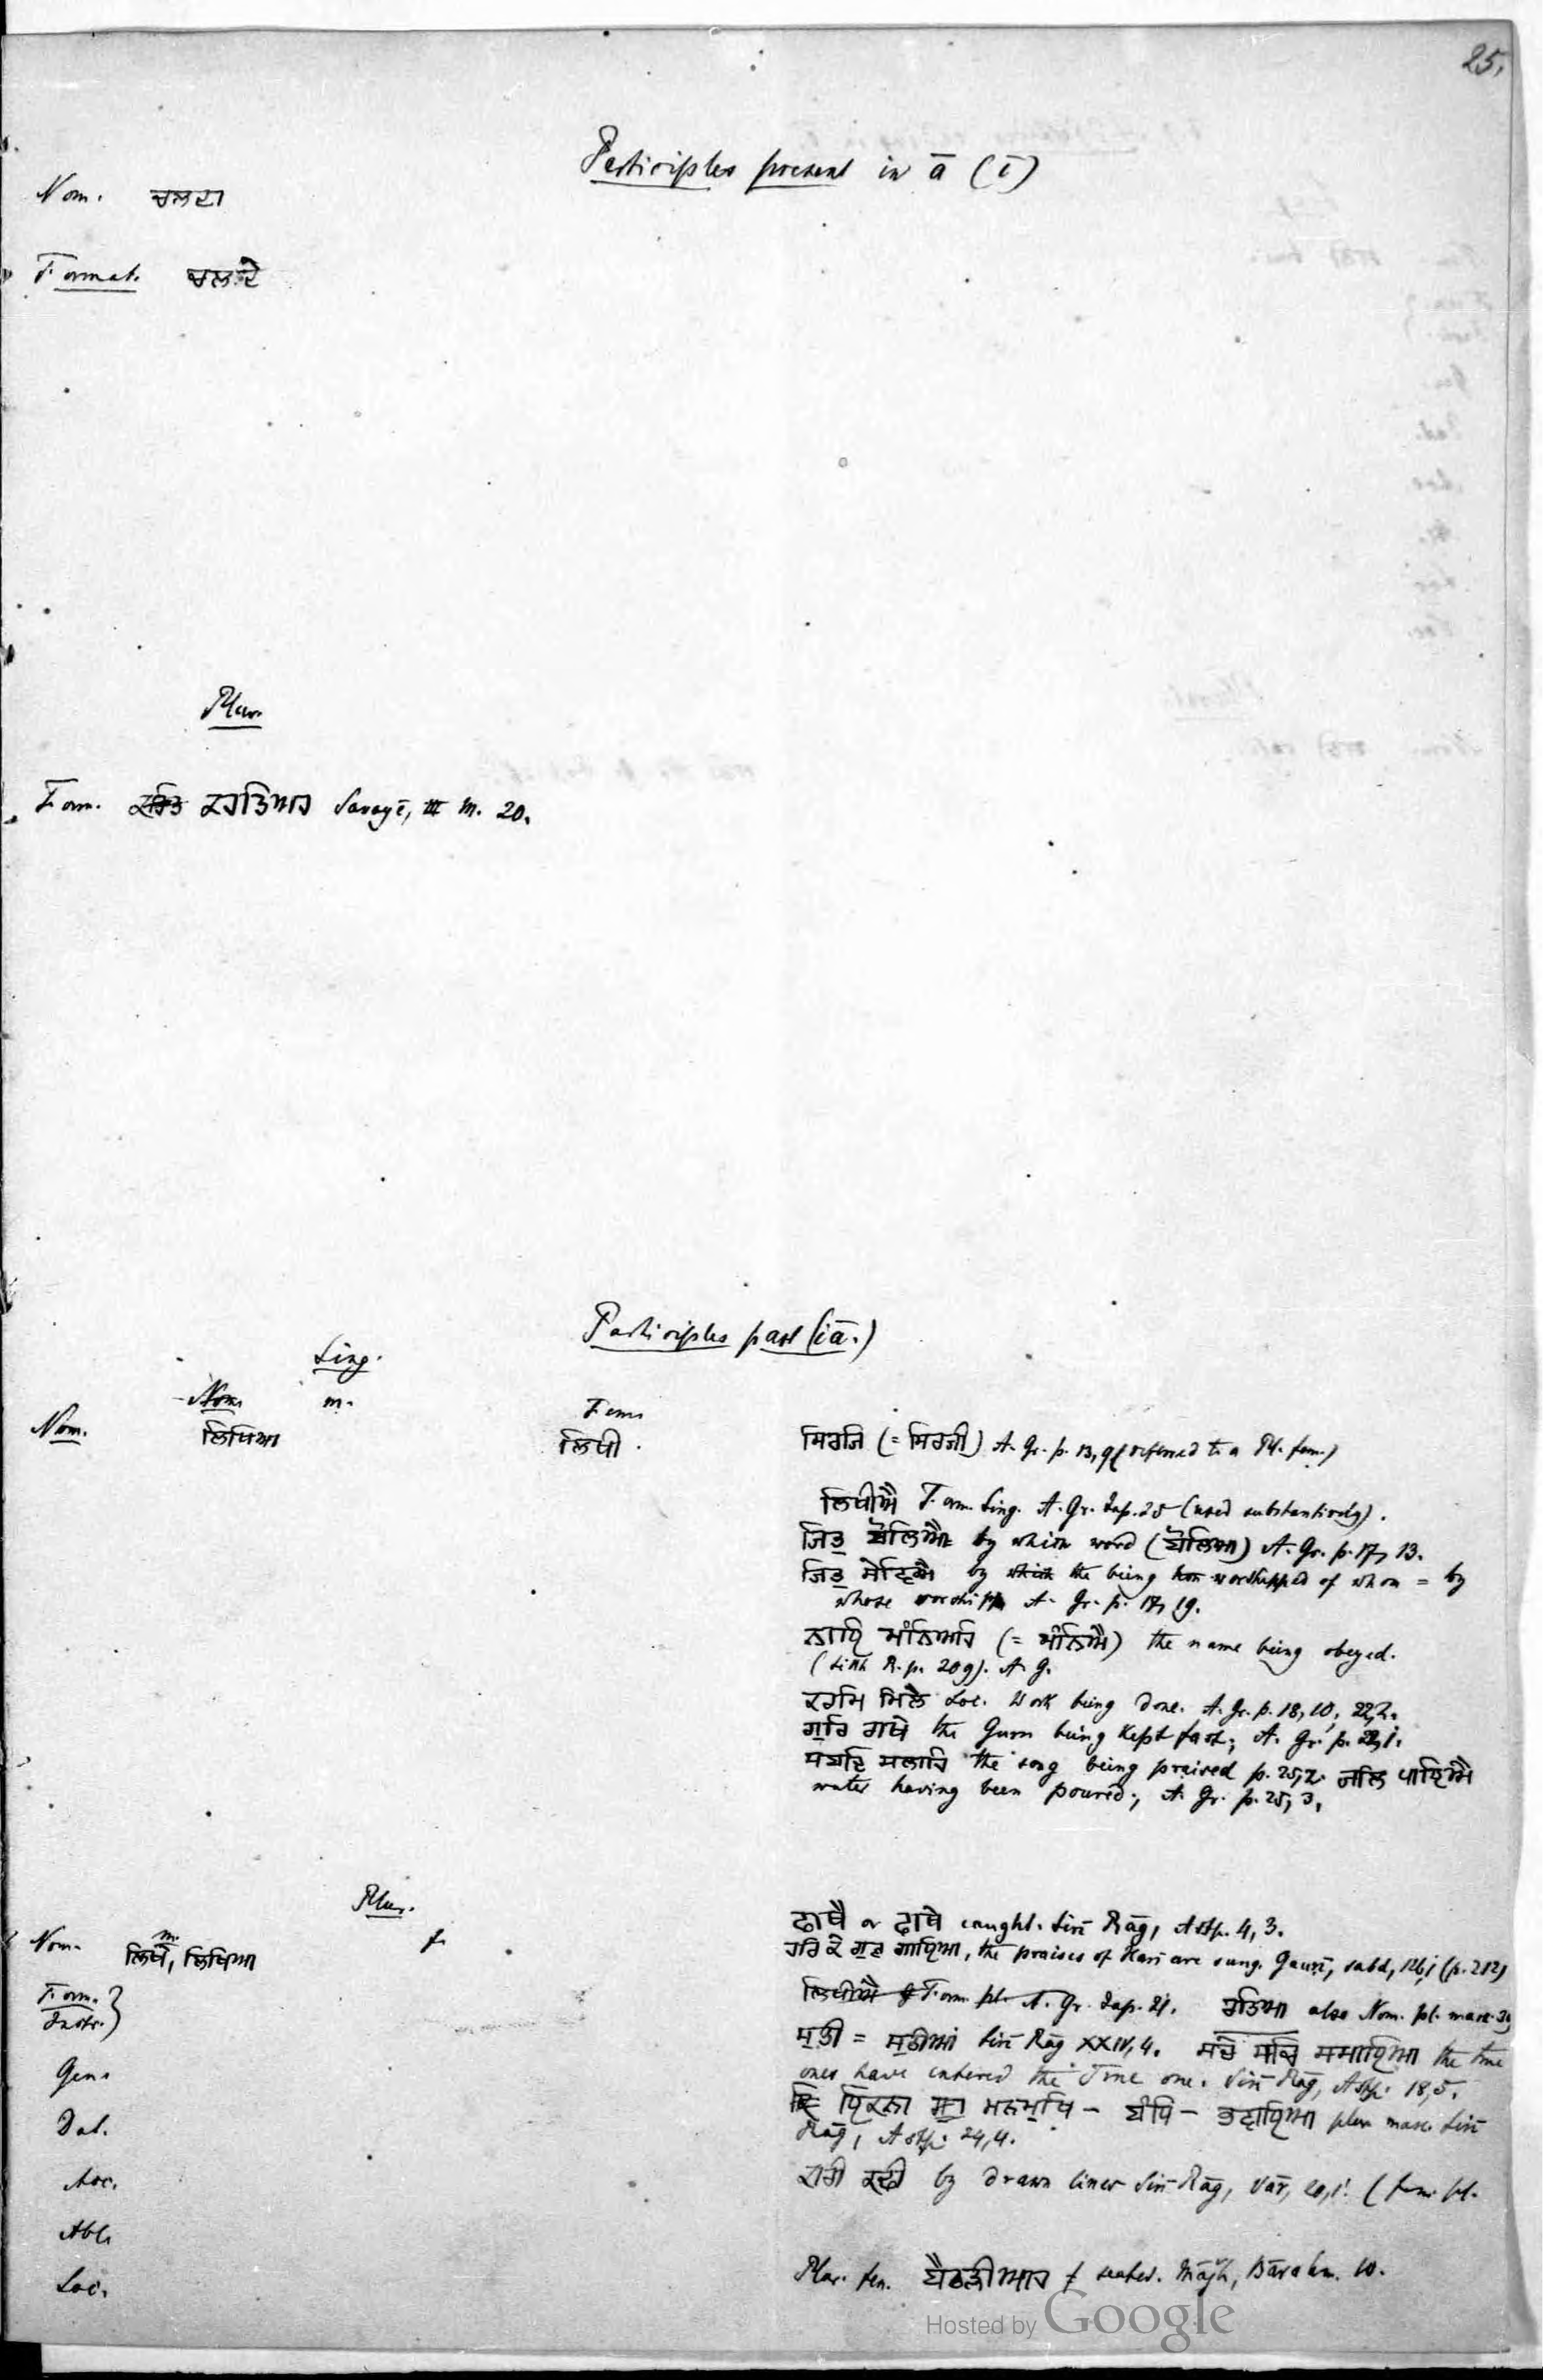 25.
Participles present in ā (ī)
Nom. ਚਲਦਾ
Format. ਚਲਦੇ
Plur.
Form. ਕਰਤਿਆਹ Savayē, III M. 20.
Participles past (iā.)
Sing.
Nom. m. Fem.
Nom. ਲਿਖਿਆ ਲਿਖੀ
ਸਿਰਜਿ (= ਸਿਰਜੀ) A. Gr. p. 13, 9 (referred to a Pl. fem.)
ਲਿਖੀਐ Form. Sing. A. Gr. Jap. 25 (used substantively).
ਜਿਤੁ ਬੋਲਿਐ by which word (ਬੋਲਿਆ) A. Gr. p. 17, 13.
ਜਿਤੁ ਸੇਵਿਐ by which the being worshipped of whom = by
whose worship A. Gr. p. 17, 19.
ਨਾਇ ਮੰਨਿਅਹਿ (= ਮੰਨਿਐ) the name being obeyed.
(Sikh R. p. 209). A. G.
ਕਰਮਿ ਮਿਲੈ Loc. Work being done. A. Gr. p. 18, 10, 22,2.
ਗੁਰਿ ਰਾਖੇ the Guru being kept fast; A. Gr. p.
ਸਬਦਿ ਸਲਾਹਿ the song being praised p. 25,2. ਜਲਿ ਪਾਇਐ
water having been poured; A. Gr. p. 25, 3.
Plur.
Nom. m. f.
ਲਿਖੇ, ਲਿਖਿਆ
Form.
Instr.
Gen.
Dat.
Acc.
Abl.
Loc.
ਫਾਥੈ or ਫਾਥੇ caught. Siri Rāg, Astp. 4, 3.
ਹਰਿ ਕੇ ਗੁਣ ਗਾਇਆ, the praises of Hari are sung. Gaurī, sabd, (p. 212)
ਲਿਖੀਐ Form. pl. A. Gr. Jap. 21. ਰਤਿਆ also Nom. pl. masc.
ਮੁਤੀ = ਮੁਠੀਆਂ Siri Rāg XXIV, 4. ਸਚੇ ਸਚਿ ਸਮਾਇਆ the true
ones have entered the True one. Siri Rāg, Astp. 18,5.
ਇਕਨਾ ਮਨਮੁਖਿ - ਬੰਧਿ - ਭਵਾਇਆ plur masc. Siri
Rāg, Astp. 24,4.
ਕਾਰੀ ਕਢੀ by drawn lines Siri Rāg, Vār, 20,1. (fem. pl.
Plur. fem. ਬੈਠੜੀਆਹ f seated. Mājh, Bārahm. 10.
Hosted by Google